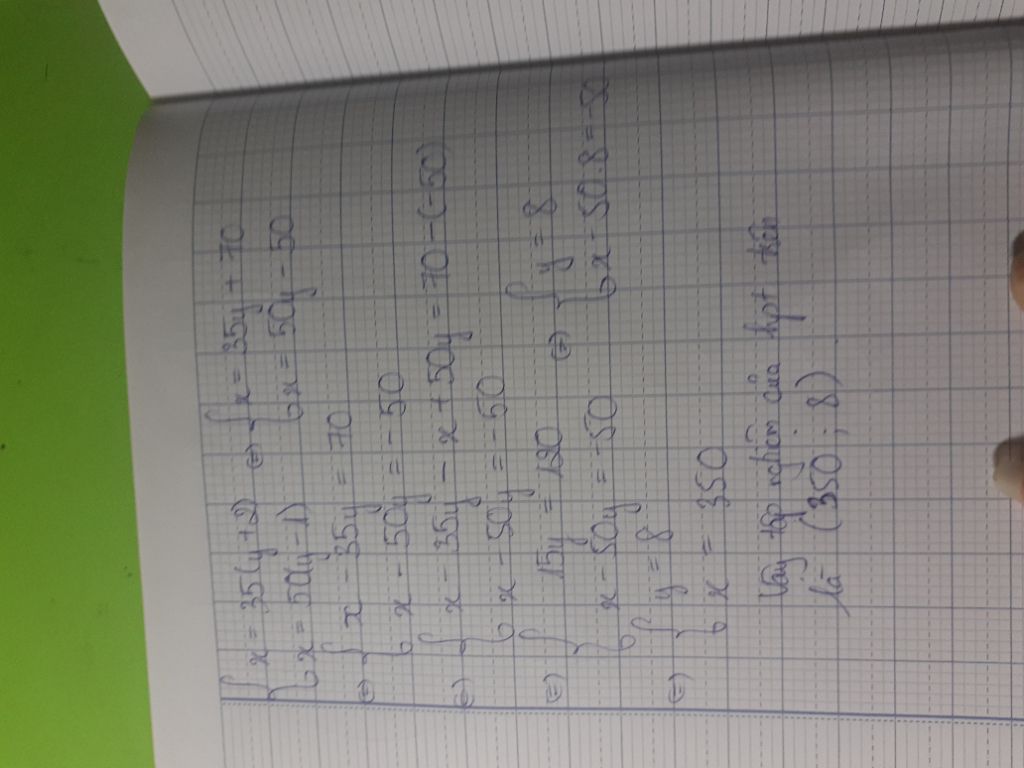 { x = 35(y+2) ⇔ { x = 35y + 70
{ x = 50(y-1) { x = 50y - 50
⇔ { x - 35y = 70
{ x - 50y = -50
⇔ { x - 35y - x + 50y = 70 - (-50)
{ x - 50y = -50
⇔ { 15y = 120 ⇔ { y = 8
{ x - 50y = -50 { x - 50.8 = -50
⇔ { y = 8
{ x = 350
Vậy tập nghiệm của hpt trên
là (350 ; 8)